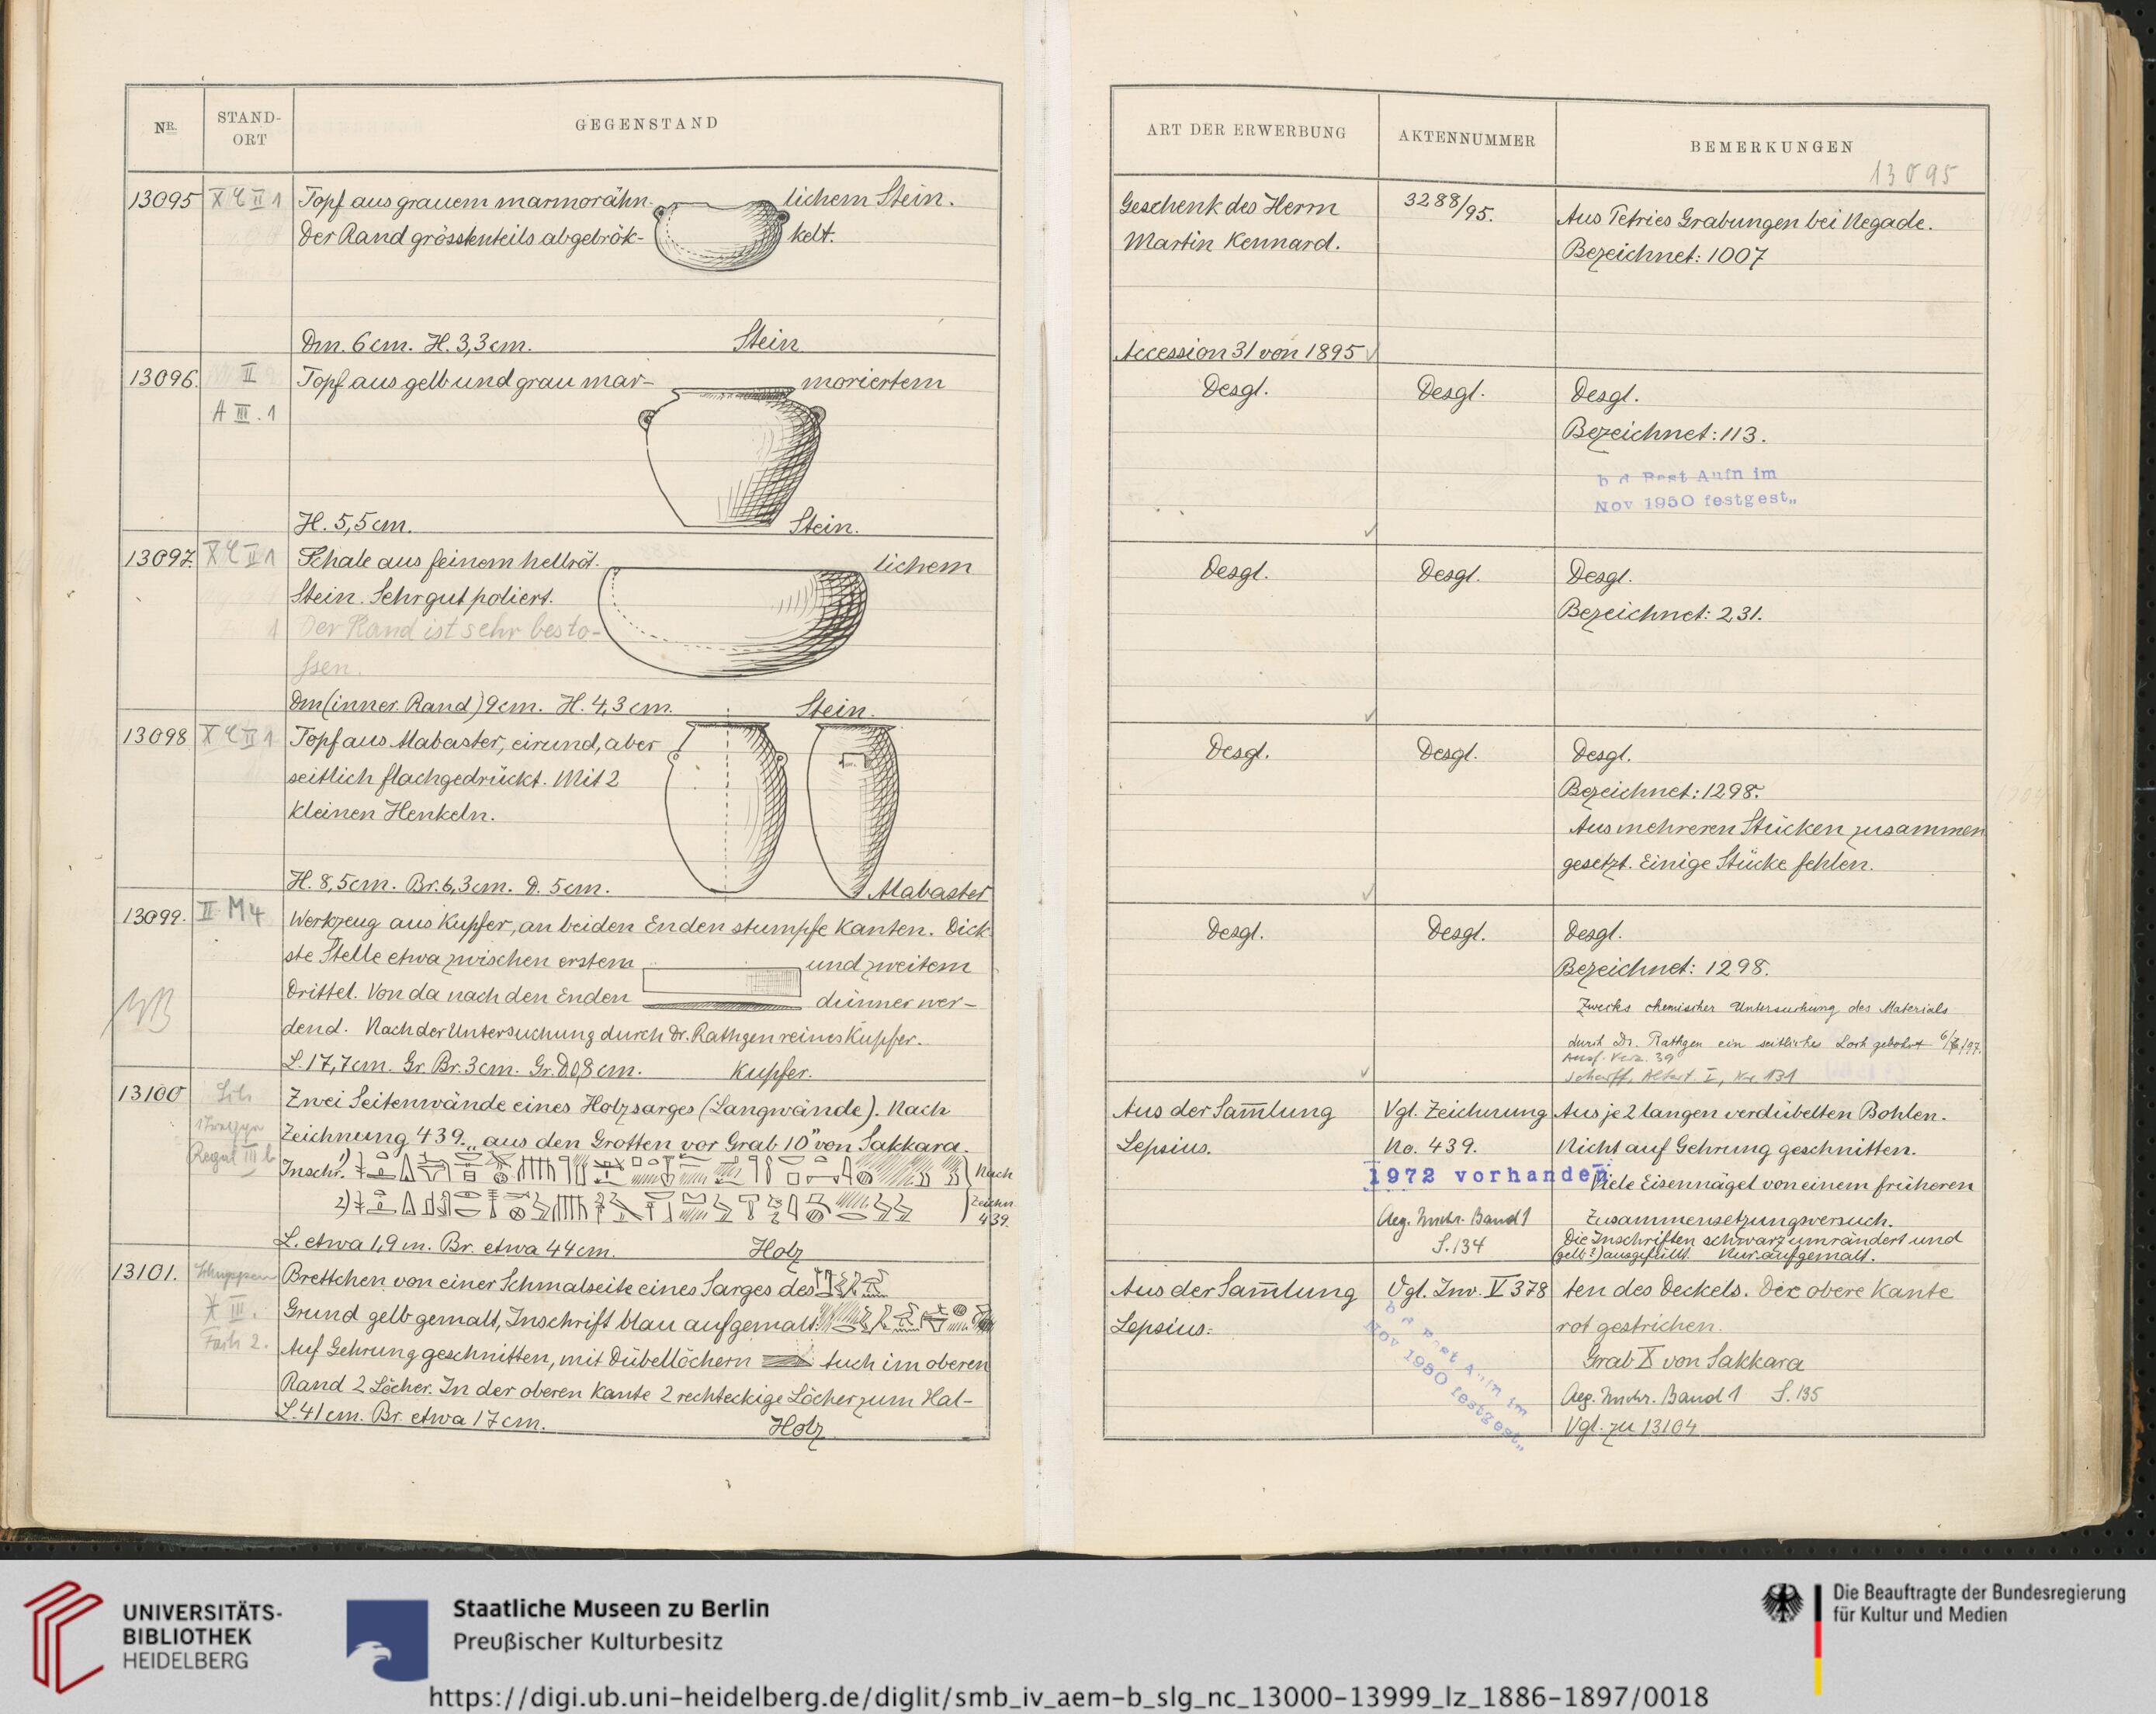 NR.
STAND-
ORT
GEGENSTAND
13095 X C II 1 Topf aus grauem marmorähn- lichem Stein.
Der Rand grösstenteils abgebrök- kelt.
Dm. 6 cm. H. 3,3 cm. Stein
13096. II Topf aus gelb und grau mar- moriertem
A III. 1
H. 5,5 cm. Stein.
13097. X C II 1 Schale aus feinem hellröt- lichem
Stein. Sehr gut poliert.
Der Rand ist sehr besto-
ssen.
Dm (inner. Rand) 9 cm. H. 4,3 cm. Stein.
13098 X C II 1 Topf aus Alabaster, eirund, aber
seitlich flachgedrückt. Mit 2
kleinen Henkeln.
H. 8,5 cm. Br. 6,3 cm. D. 5 cm. Alabaster
13099. II M4 Werkzeug aus Kupfer, an beiden Enden stumpfe Kanten. Dick-
ste Stelle etwa zwischen erstem und zweitem
Drittel. Von da nach den Enden dünner wer-
dend. Nach der Untersuchung durch Dr. Rathgen reines Kupfer.
L. 17,7 cm. Gr. Br. 3 cm. Gr. D. 0,8 cm. Kupfer.
13100 Zwei Seitenwände eines Holzsarges (Langwände). Nach
Zeichnung 439. „aus den Grotten vor Grab 10" von Sakkara.
Inschr. 1) Nach
2) Zeichn.
439.
L. etwa 1,9 m. Br. etwa 44 cm. Holz
13101. Schuppen Brettchen von einer Schmalseite eines Sarges des
X III. Grund gelb gemalt, Inschrift blau aufgemalt:
Fach 2. Auf Gehrung geschnitten, mit Dübellöchern Auch im oberen
Rand 2 Löcher. In der oberen Kante 2 rechteckige Löcher zum Hal-
L. 41 cm. Br. etwa 17 cm. Holz
ART DER ERWERBUNG
AKTENNUMMER
BEMERKUNGEN
13095
Geschenk des Herrn 3288/95. Aus Petries Grabungen bei Negade.
Martin Kennard. Bezeichnet: 1007
Accession 31 von 1895
Desgl. Desgl. Desgl.
Bezeichnet: 113.
b d Best Aufn im
Nov 1950 festgest„
Desgl. Desgl. Desgl.
Bezeichnet: 231.
Desgl. Desgl. Desgl.
Bezeichnet: 1298.
Aus mehreren Stücken zusammen
gesetzt. Einige Stücke fehlen.
Desgl. Desgl. Desgl.
Bezeichnet: 1298.
Zwecks chemischer Untersuchung des Materials
durch Dr. Rathgen ein seitliches Loch gebohrt
Ausf. Verz. 39
Scharff, Altert. I, Nr 131
Aus der Sam̄lung Vgl. Zeichnung Aus je 2 langen verdübelten Bohlen.
Lepsius. No. 439. Nicht auf Gehrung geschnitten.
1972 vorhanden Viele Eisennägel von einem früheren
Aeg. Inschr. Band 1 Zusammensetzungsversuch.
S. 134 Die Inschriften schwarz umrändert und
(gelb?) ausgefüllt. Nur aufgemalt.
Aus der Sam̄lung Vgl. Inv. V 378 ten des Deckels. Die obere Kante
Lepsius. rot gestrichen.
b d Best Aufn im
Nov 1950 festgest„
Grab X von Sakkara
Aeg. Inschr. Band 1 S. 135
Vgl. zu 13104
UNIVERSITÄTS-
BIBLIOTHEK
HEIDELBERG
Staatliche Museen zu Berlin
Preußischer Kulturbesitz
Die Beauftragte der Bundesregierung
für Kultur und Medien
https://digi.ub.uni-heidelberg.de/diglit/smb_iv_aem-b_slg_nc_13000-13999_lz_1886-1897/0018